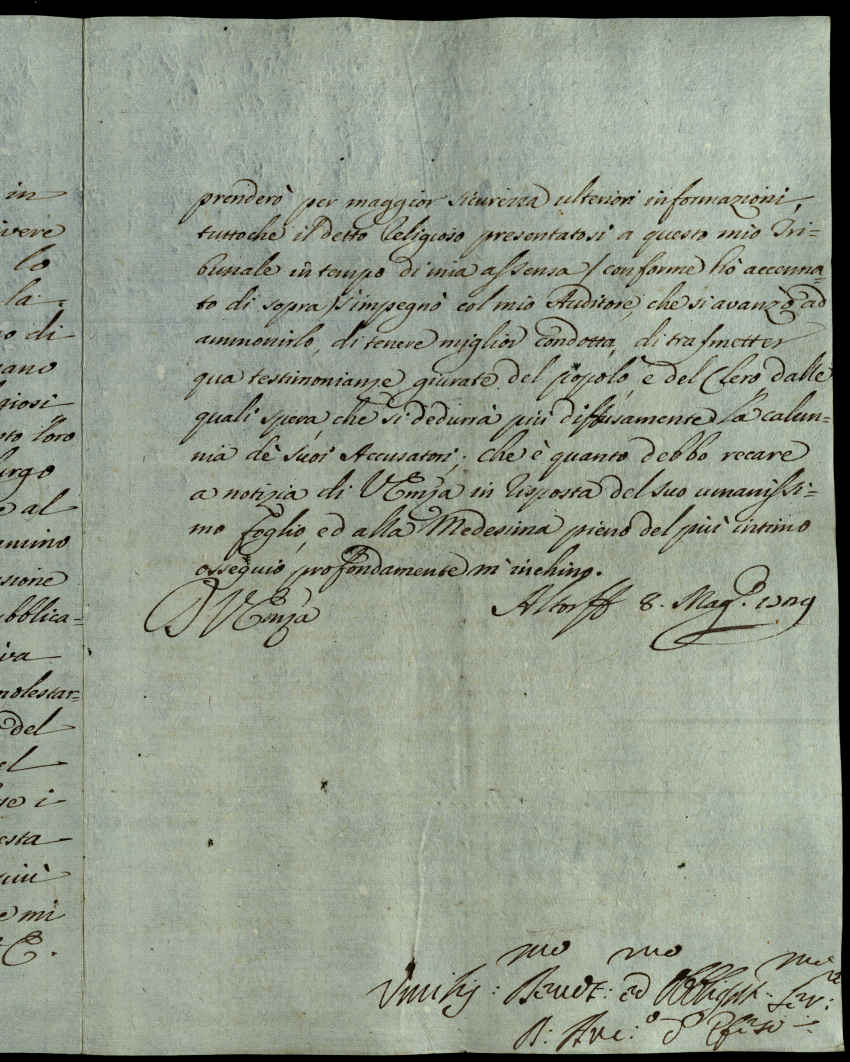 in
ivere
lo
la
o di
ano
giosi
loro
urgo
e al
animo
sione
bblica=
iva
molestar=
del
el
se i
esta
più
e mi
E.
prenderò per maggior sicurezza ulteriori informazioni,
tuttoché il detto Religioso presentatosi a questo mio Tri=
bunale in tempo di mia assenza / conforme hò accenna
to di sopra / s'impegnò col mio Auditore, che si avanzò ad
ammonirlo, di tenere miglior condotta, di trasmetter
qua testimonianze giurate del popolo, e del Clero dalle
quali spera, che si dedurrà più diffusamente la calun=
nia de suoi Accusatori; che è quanto debbo recare
a notizia di VEmza in risposta del suo umanissi=
mo foglio, ed alla Medesima pieno del più intimo
ossequio profondamente m'inchino.
D VEmza
Altorff 8. Magg.o 1729
Umiliss: mo Devot: mo ed Obbligat: mo Serv: re
D: Arc:o d'Efeso